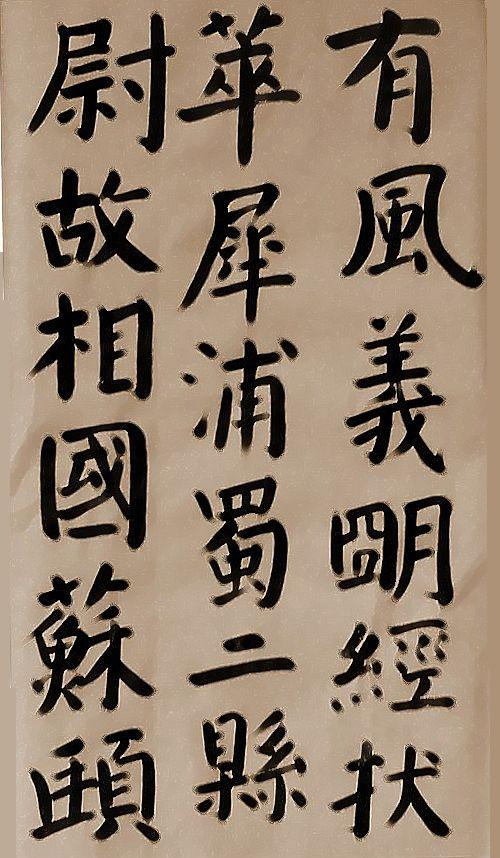 有風義朙經拔
萃犀浦蜀二縣
尉故相國蘇頲